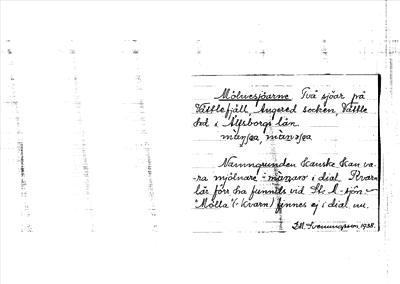 Mölnesjöarne Två sjöar på
Vättlefjäll, Angered socken, Vättle
hd i Älfsborgs län
Namngrunden kanske kan va-
ra mjölnare = månaro i dial. Kvarn
lär förr ha funnits vid St. M-sjön -
"Mölla" (= kvarn) finnes ej i dial. nu.
J.M. Svenungsson, 1938.